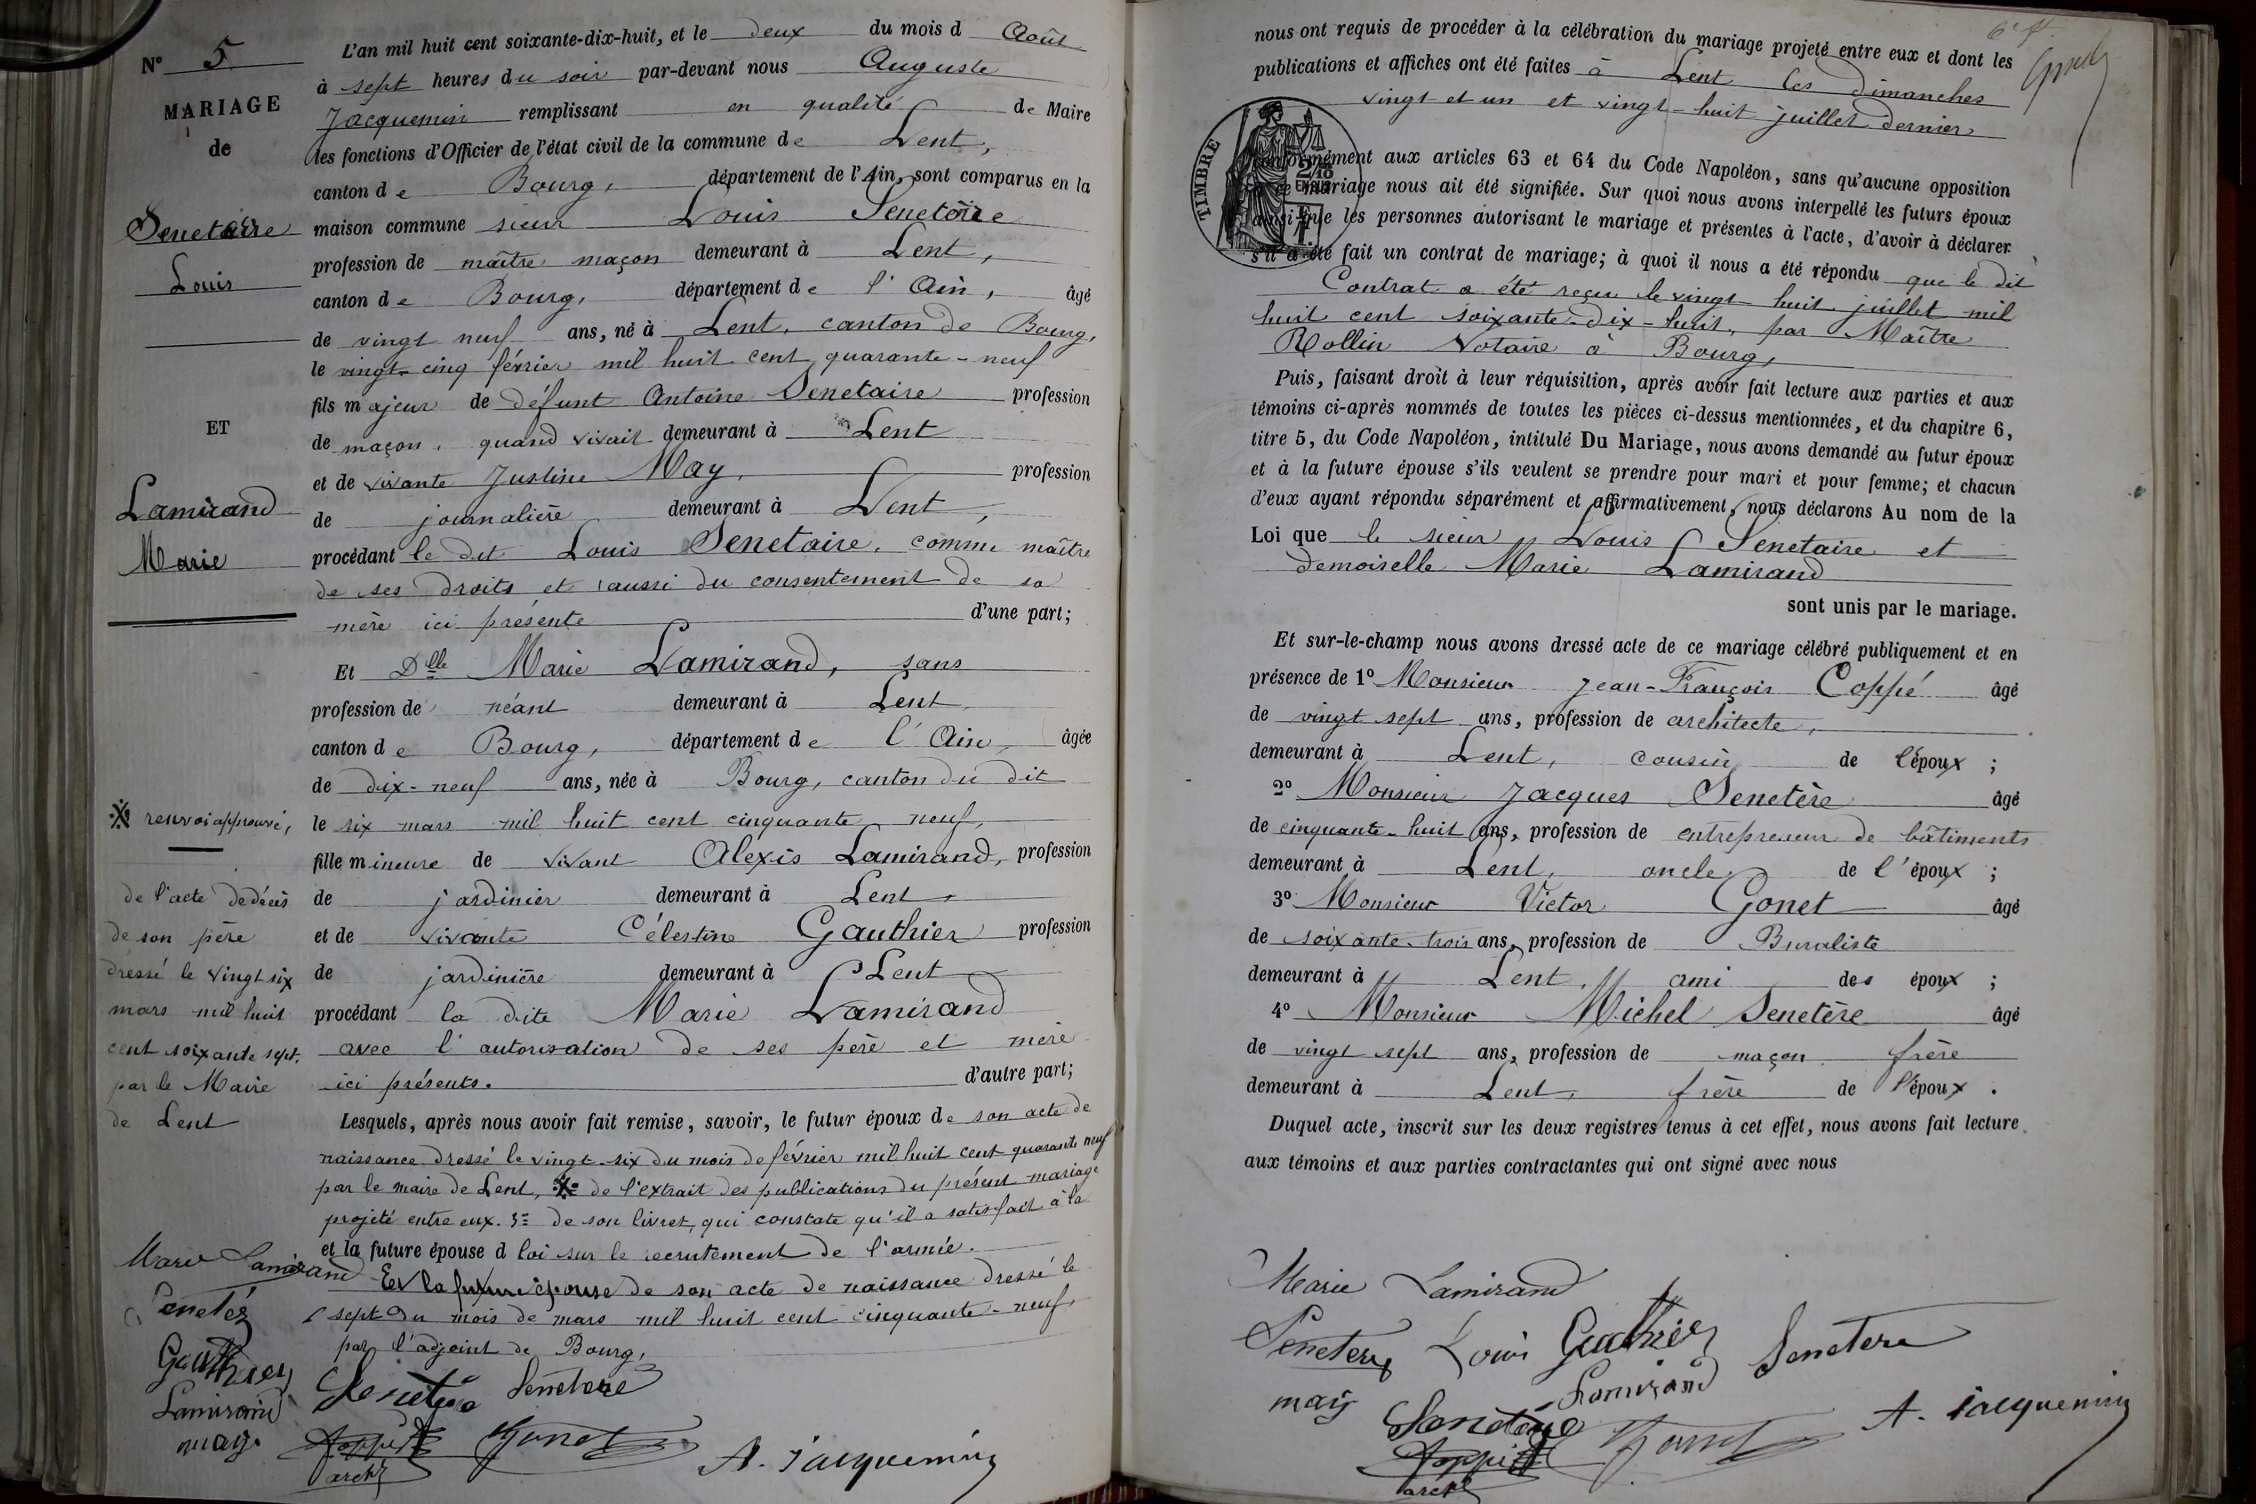 N° 5
MARIAGE
de
Senetaire
Louis
ET
Lamirand
Marie
※ renvoi approuvé,
de l'acte de décès
de son père
dressé le vingt six
mars mil huit
cent soixante sept.
par le Maire
de Lent
L'an mil huit cent soixante-dix-huit, et le deux du mois d Août
à sept heures du soir par-devant nous Auguste
Jacquemin remplissant en qualité de Maire
les fonctions d'Officier de l'état civil de la commune de Lent,
canton de Bourg, département de l'Ain, sont comparus en la
maison commune sieur Louis Senetaire
profession de maître maçon demeurant à Lent,
canton de Bourg, département de l'Ain, âgé
de vingt neuf ans, né à Lent, canton de Bourg,
le vingt-cinq février mil huit cent quarante-neuf
fils majeur de défunt Antoine Senetaire profession
de maçon, quand vivait demeurant à Lent
et de vivante Justine May, profession
de journalière demeurant à Lent,
procédant le dit Louis Senetaire, comme maître
de ses droits et aussi du consentement de sa
mère ici présente d'une part;
Et Dlle Marie Lamirand, sans
profession de néant demeurant à Lent,
canton de Bourg, département de l'Ain, âgée
de dix-neuf ans, née à Bourg, canton du dit
le six mars mil huit cent cinquante neuf,
fille mineure de vivant Alexis Lamirand, profession
de jardinier demeurant à Lent,
et de vivante Célestine Gauthier profession
de jardinière demeurant à Lent
procédant la dite Marie Lamirand
avec l'autorisation de ses père et mère
ici présents. d'autre part;
Lesquels, après nous avoir fait remise, savoir, le futur époux de son acte de
naissance dressé le vingt-six du mois de février mil huit cent quarante neuf
par le maire de Lent, ※ de l'extrait des publications du présent mariage
projeté entre eux. 3= de son livret, qui constate qu'il a satisfait à la
et la future épouse d loi sur le recrutement de l'armée.
Et la future épouse de son acte de naissance dressé le
sept du mois de mars mil huit cent cinquante-neuf,
par l'adjoint de Bourg,
Marie Lamirand
Gauthier
Lamirand
may
Senetere
Gonet
arch
A. Jacquemin
nous ont requis de procéder à la célébration du mariage projeté entre eux et dont les
publications et affiches ont été faites à Lent les Dimanches
vingt et un et vingt-huit juillet dernier
TIMBRE
conformément aux articles 63 et 64 du Code Napoléon, sans qu'aucune opposition
à ce mariage nous ait été signifiée. Sur quoi nous avons interpellé les futurs époux
ainsi que les personnes autorisant le mariage et présentes à l'acte, d'avoir à déclarer
s'il a été fait un contrat de mariage; à quoi il nous a été répondu que le dit
Contrat a été reçu le vingt huit juillet mil
huit cent soixante-dix-huit, par Maître
Rollin Notaire à Bourg,
Puis, faisant droit à leur réquisition, après avoir fait lecture aux parties et aux
témoins ci-après nommés de toutes les pièces ci-dessus mentionnées, et du chapitre 6,
titre 5, du Code Napoléon, intitulé Du Mariage, nous avons demandé au futur époux
et à la future épouse s'ils veulent se prendre pour mari et pour femme; et chacun
d'eux ayant répondu séparément et affirmativement, nous déclarons Au nom de la
Loi que le sieur Louis Senetaire et
demoiselle Marie Lamirand
sont unis par le mariage.
Et sur-le-champ nous avons dressé acte de ce mariage célébré publiquement et en
présence de 1° Monsieur Jean-François Coppé âgé
de vingt sept ans, profession de architecte,
demeurant à Lent, cousin de l'époux ;
2° Monsieur Jacques Senetère âgé
de cinquante-huit ans, profession de entrepreneur de bâtiments
demeurant à Lent, oncle de l'époux ;
3° Monsieur Victor Gonet âgé
de soixante-trois ans, profession de Buraliste
demeurant à Lent, ami des époux ;
4° Monsieur Michel Senetère âgé
de vingt sept ans, profession de maçon frère
demeurant à Lent, frère de l'époux .
Duquel acte, inscrit sur les deux registres tenus à cet effet, nous avons fait lecture
aux témoins et aux parties contractantes qui ont signé avec nous
Marie Lamirand
Senetere Louis Gauthier Senetere
may Lamirand
A. Jacquemin
arch